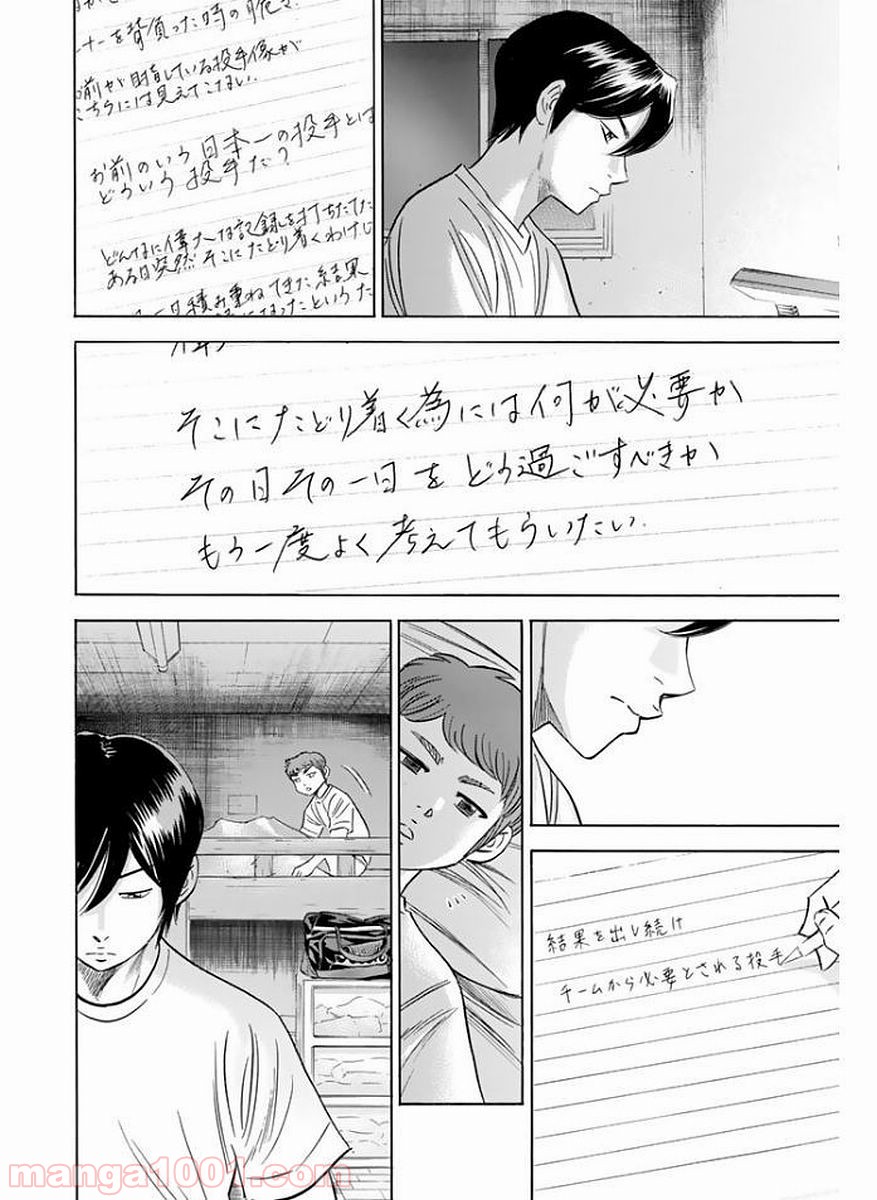 ナーを背負った時の脆さ。
お前が目指している投手像が
こちらには見えてこない。
お前のいう日本一の投手とは
どういう投手だ？
どんなに偉大な記録を打ちたてた
ある日突然そこにたどり着くわけじ
一日積み重ねてきた結果
なったというた
そこにたどり着く為には何が必要か
その日その一日をどう過ごすべきか
もう一度よく考えてもらいたい。
結果を出し続け
チームから必要とされる投手
manga1001.com